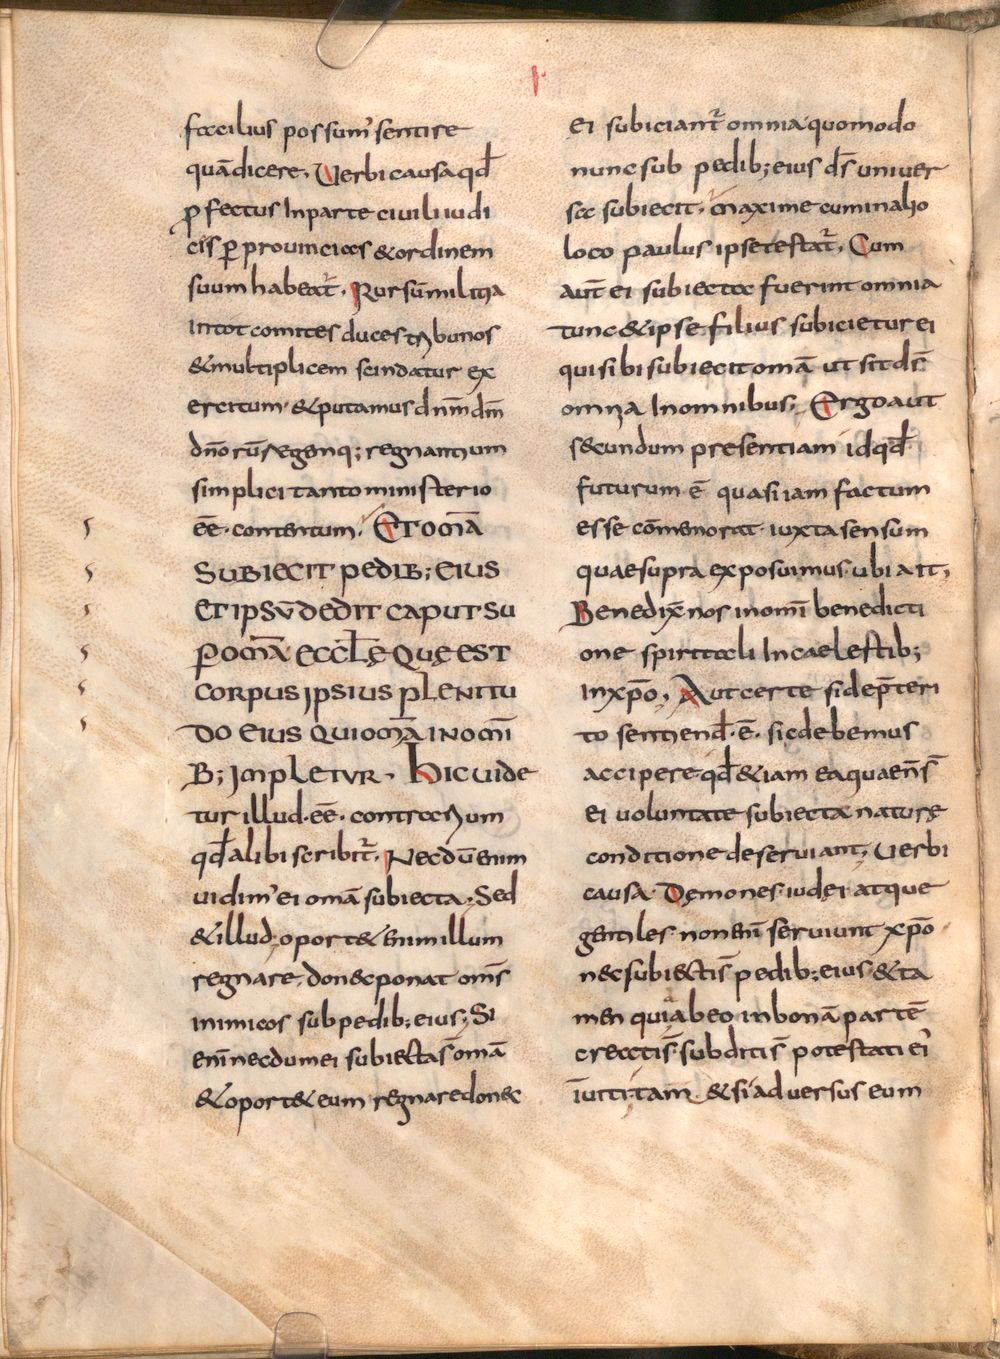 facilius possum' sentire
quā dicere. Verbi causa qđ
ꝓfectus In parte ciuili iudi
cis ꝑ prouincias & ordinem
suum habeat̄. Rursū militia
in tot comites duces tribunos
& multiplicem scindatur ex
ercitum· & putamus dnm̄ dm̄
dn̄orū regemq; regnantium
simplici tanto ministerio
eē· contentum. ET OM̄A
SUBIECIT PEDIB; EIUS
ET IPSŪ DEDIT CAPUT SU
P̱ OM̄A ECCLĘ QUĘ EST
CORPUS IPSIUS PLENITU
DO EIUS QUI OM̄A IN OM̄I
B; IMPLETUR. hic uide
tur illud· eē· contrarium
qđ alibi scribit̄. Necdū enim
uidim' ei omā subiecta. Sed
& illud; oport& enim illum
regnare, donec ponat om̄s
inimicos sub pedib; eius; Si
enī necdum ei subiecta s̄ omā
& oport& eum regnare donec
I
ei subiciant̄ omnia· quomodo
nunc sub pedib; eius ds̄ uniuer
sa subiecit. maxime cum in alio
loco paulus ipse testat̄. Cum
aut̄ ei subiecta fuerint omnia
tunc & ipse filius subicietur ei
qui sibi subiecit omā ut sit ds̄
omnia In omnibus. Ergo aut
secundum presentiam id qđ
futurum ē quasi iam factum
esse com̄emorat· iuxta sensum
quae supra exposuimus· ubi ait,
Benedix̄ nos in omī benedicti
one spiritali In caelestib;
In xp̄o, Aut certe si de p̄teri
to sentiend̄·ē· sic debemus
accipere· qđ & iam ea quae n̄s̄
ei uoluntate subiecta naturę
conditione deseruiant, Uerbi
causa· Dęmones· iudęi atque
gentiles· non enī seruiunt xp̄o
nec subiecti s̄ pedib; eius & ta
men quia ab eo in bonā partē
creati s̄· subditi s̄ potestati ei'
īuiti· tam̄· & si aduersus eum